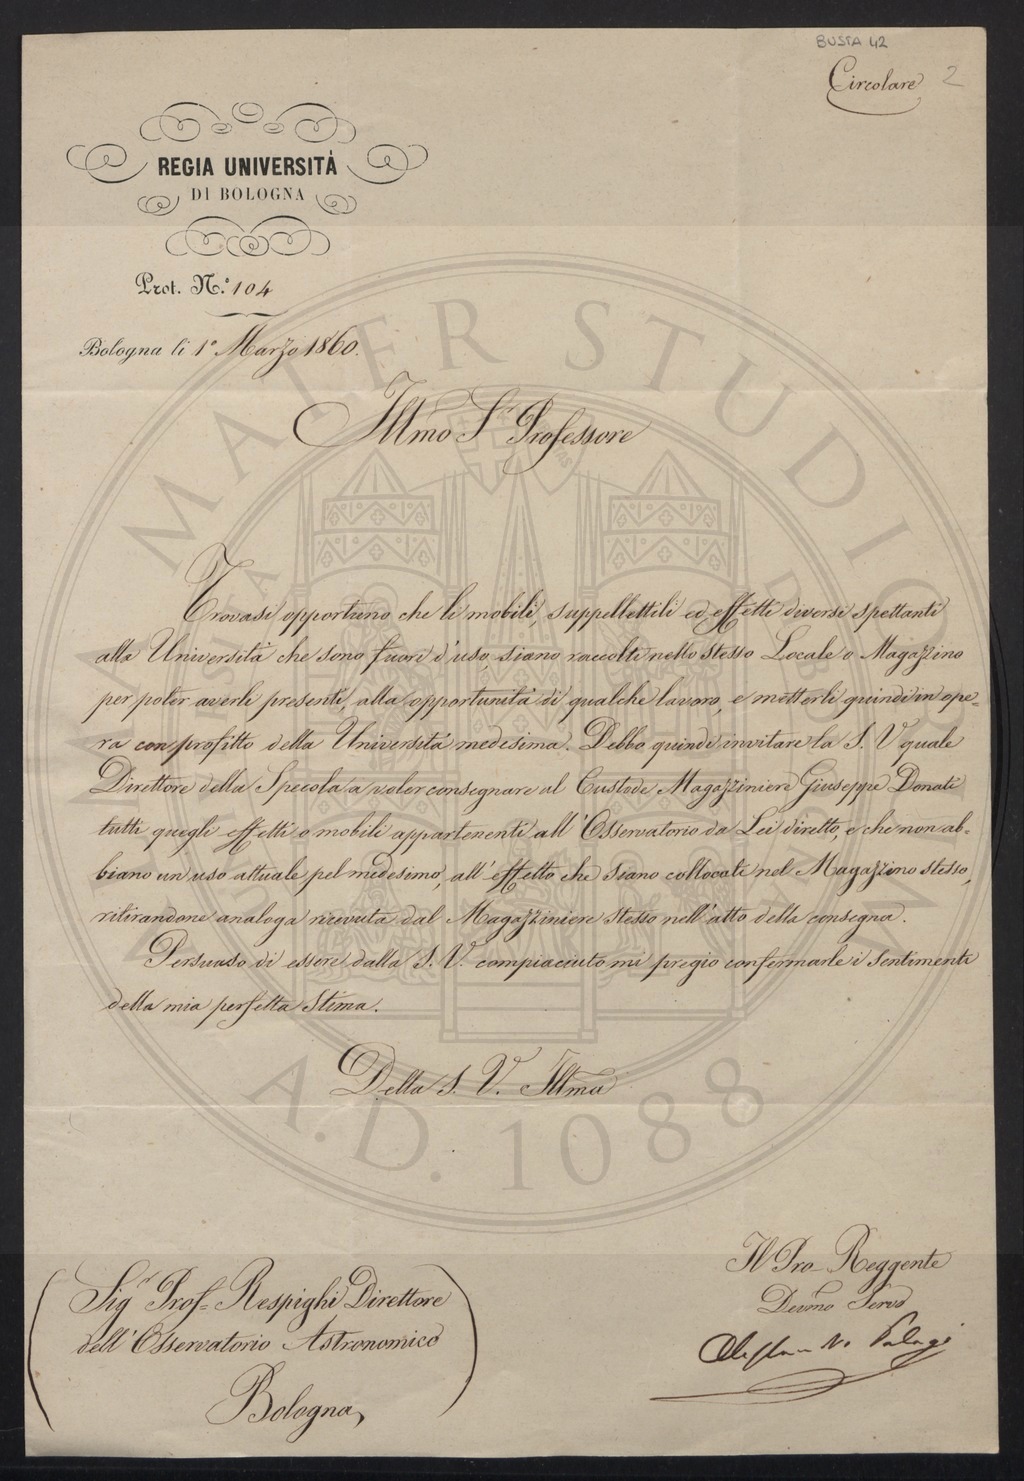 BUSTA 42
Circolare 2
REGIA UNIVERSITÀ
DI BOLOGNA
Prot. N.° 104
Bologna li 1° Marzo 1860.
Illmo Sr Professore
Trovasi opportuno che li mobili, suppellettili ed effetti diversi spettanti
alla Università che sono fuori d'uso, siano raccolti nello stesso Locale o Magazzino
per poter averli presenti, alla opportunità di qualche lavoro, e metterli quindi in ope=
ra con profitto della Università medesima. Debbo quindi invitare la S. V. quale
Direttore della Specola a voler consegnare al Custode Magazziniere Giuseppe Donati
tutti quegli effetti o mobili appartenenti all'Osservatorio da Lei diretto, e che non ab=
biano un uso attuale pel medesimo, all'effetto che siano collocati nel Magazzino stesso,
ritirandone analoga ricevuta dal Magazziniere stesso nell'atto della consegna.
Persuaso di essere dalla S. V. compiaciuto mi pregio confermarle i sentimenti
della mia perfetta stima.
Della S. V. Illma
Il Pro-Reggente
Devmo Servo
Sigr Prof= Respighi Direttore
dell'Osservatorio Astronomico
Bologna
ALMA MATER STUDIORUM
A.D. 1088